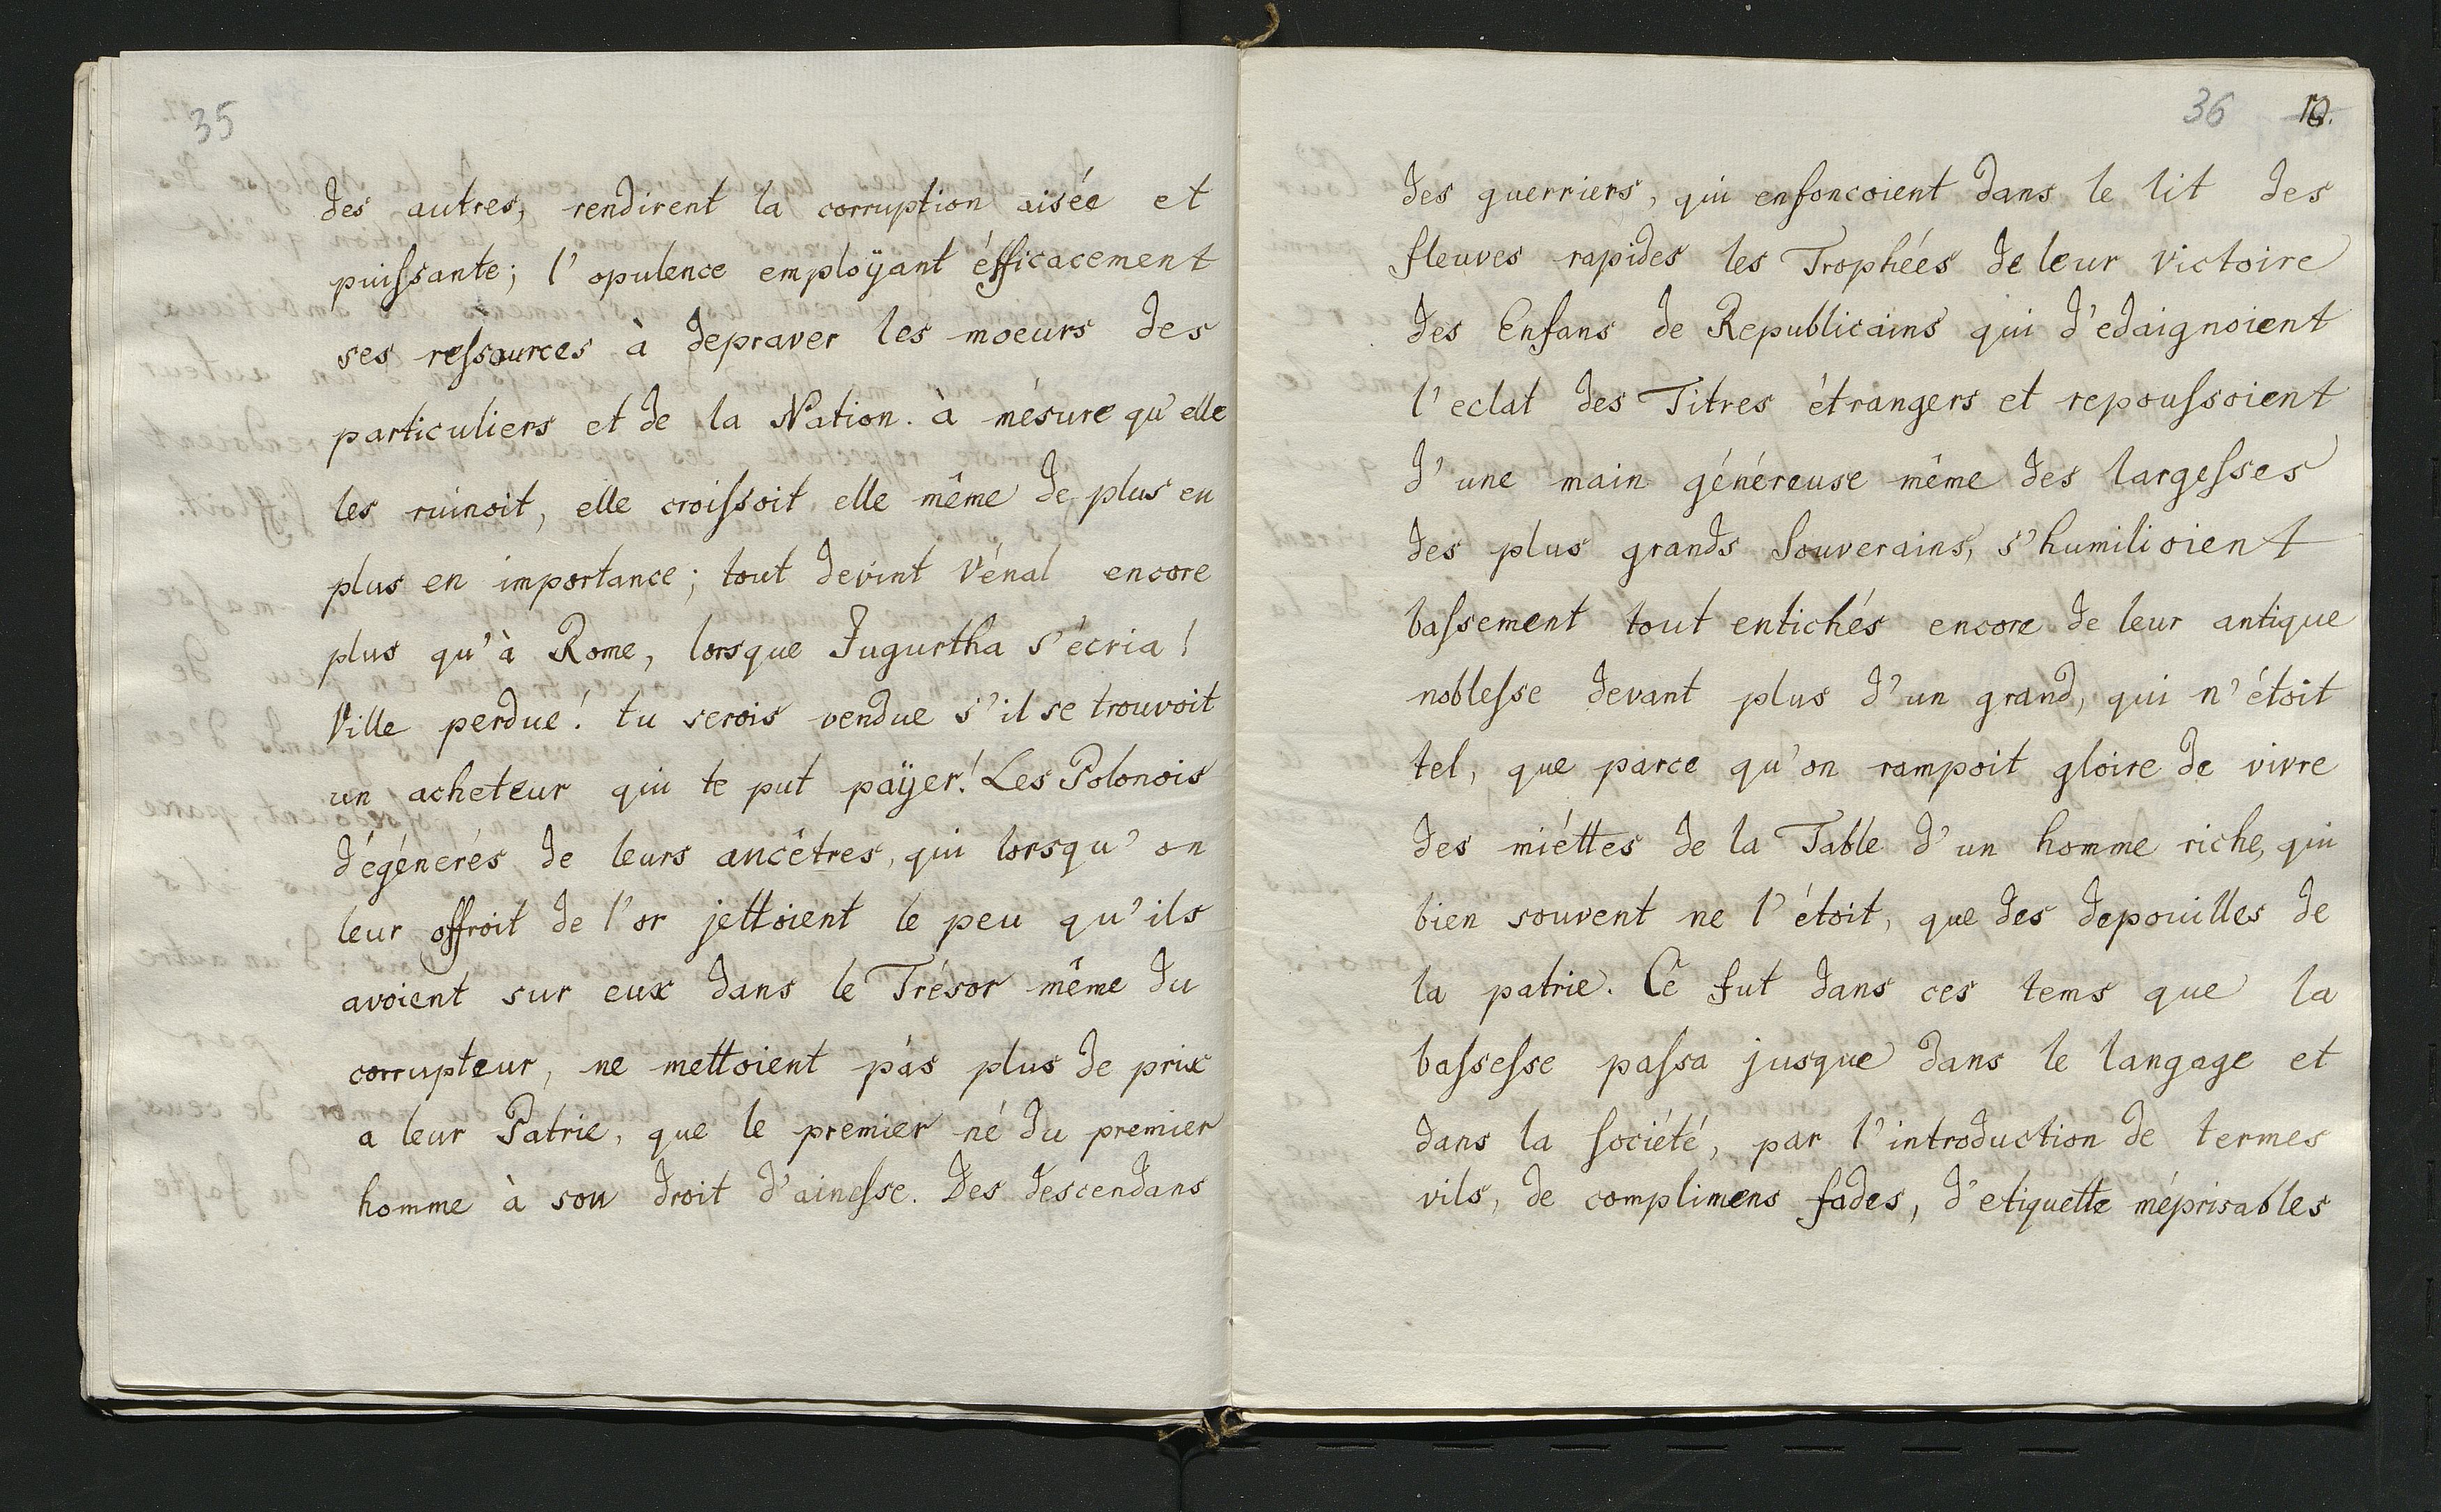 35
des autres, rendirent la corruption aisée et
puissante; l'opulence employant éfficacement
ses ressources à depraver les moeurs des
particuliers et de la Nation. à mésure qu'elle
les ruinoit, elle croissoit elle même de plus eu
plus en importance; tout devint vénal encore
plus qu'à Rome, lorsque Jugurtha s'écria!
Ville perdue! tu serois vendue s'il se trouvoit
un acheteur qui te put payer! Les Polonois
dégénerés de leurs ancêtres, qui lorsqu'on
leur offroit de l'or jettoient le peu qu'ils
avoient sur eux dans le Trésor même du
corrupteur, ne mettoient pas plus de prix
a leur Patrie, que le premier né du premier
homme à sou droit d'ainesse. Des descendans
36
des guerriers, qui enfoncoient dans le lit des
fleuves rapides les Trophées de leur victoire
des Enfans de Republicains qui d'edaignoient
l'eclat des Titres étrangers et repoussoient
d'une main généreuse même des largesses
des plus grands Souverains, s'humilioient
bassement tout entichés encore de leur antique
noblesse devant plus d'un grand, qui n'étoit
tel, que parce qu'on rampoit gloire de vivre
des miéttes de la Table d'un homme riche, qui
bien souvent ne l'étoit, que des depouilles de
la patrie. Ce fut dans ces tems que la
bassesse passa jusque dans le langage et
dans la société, par l'introduction de termes
vils, de complimens fades, d'etiquette méprisables